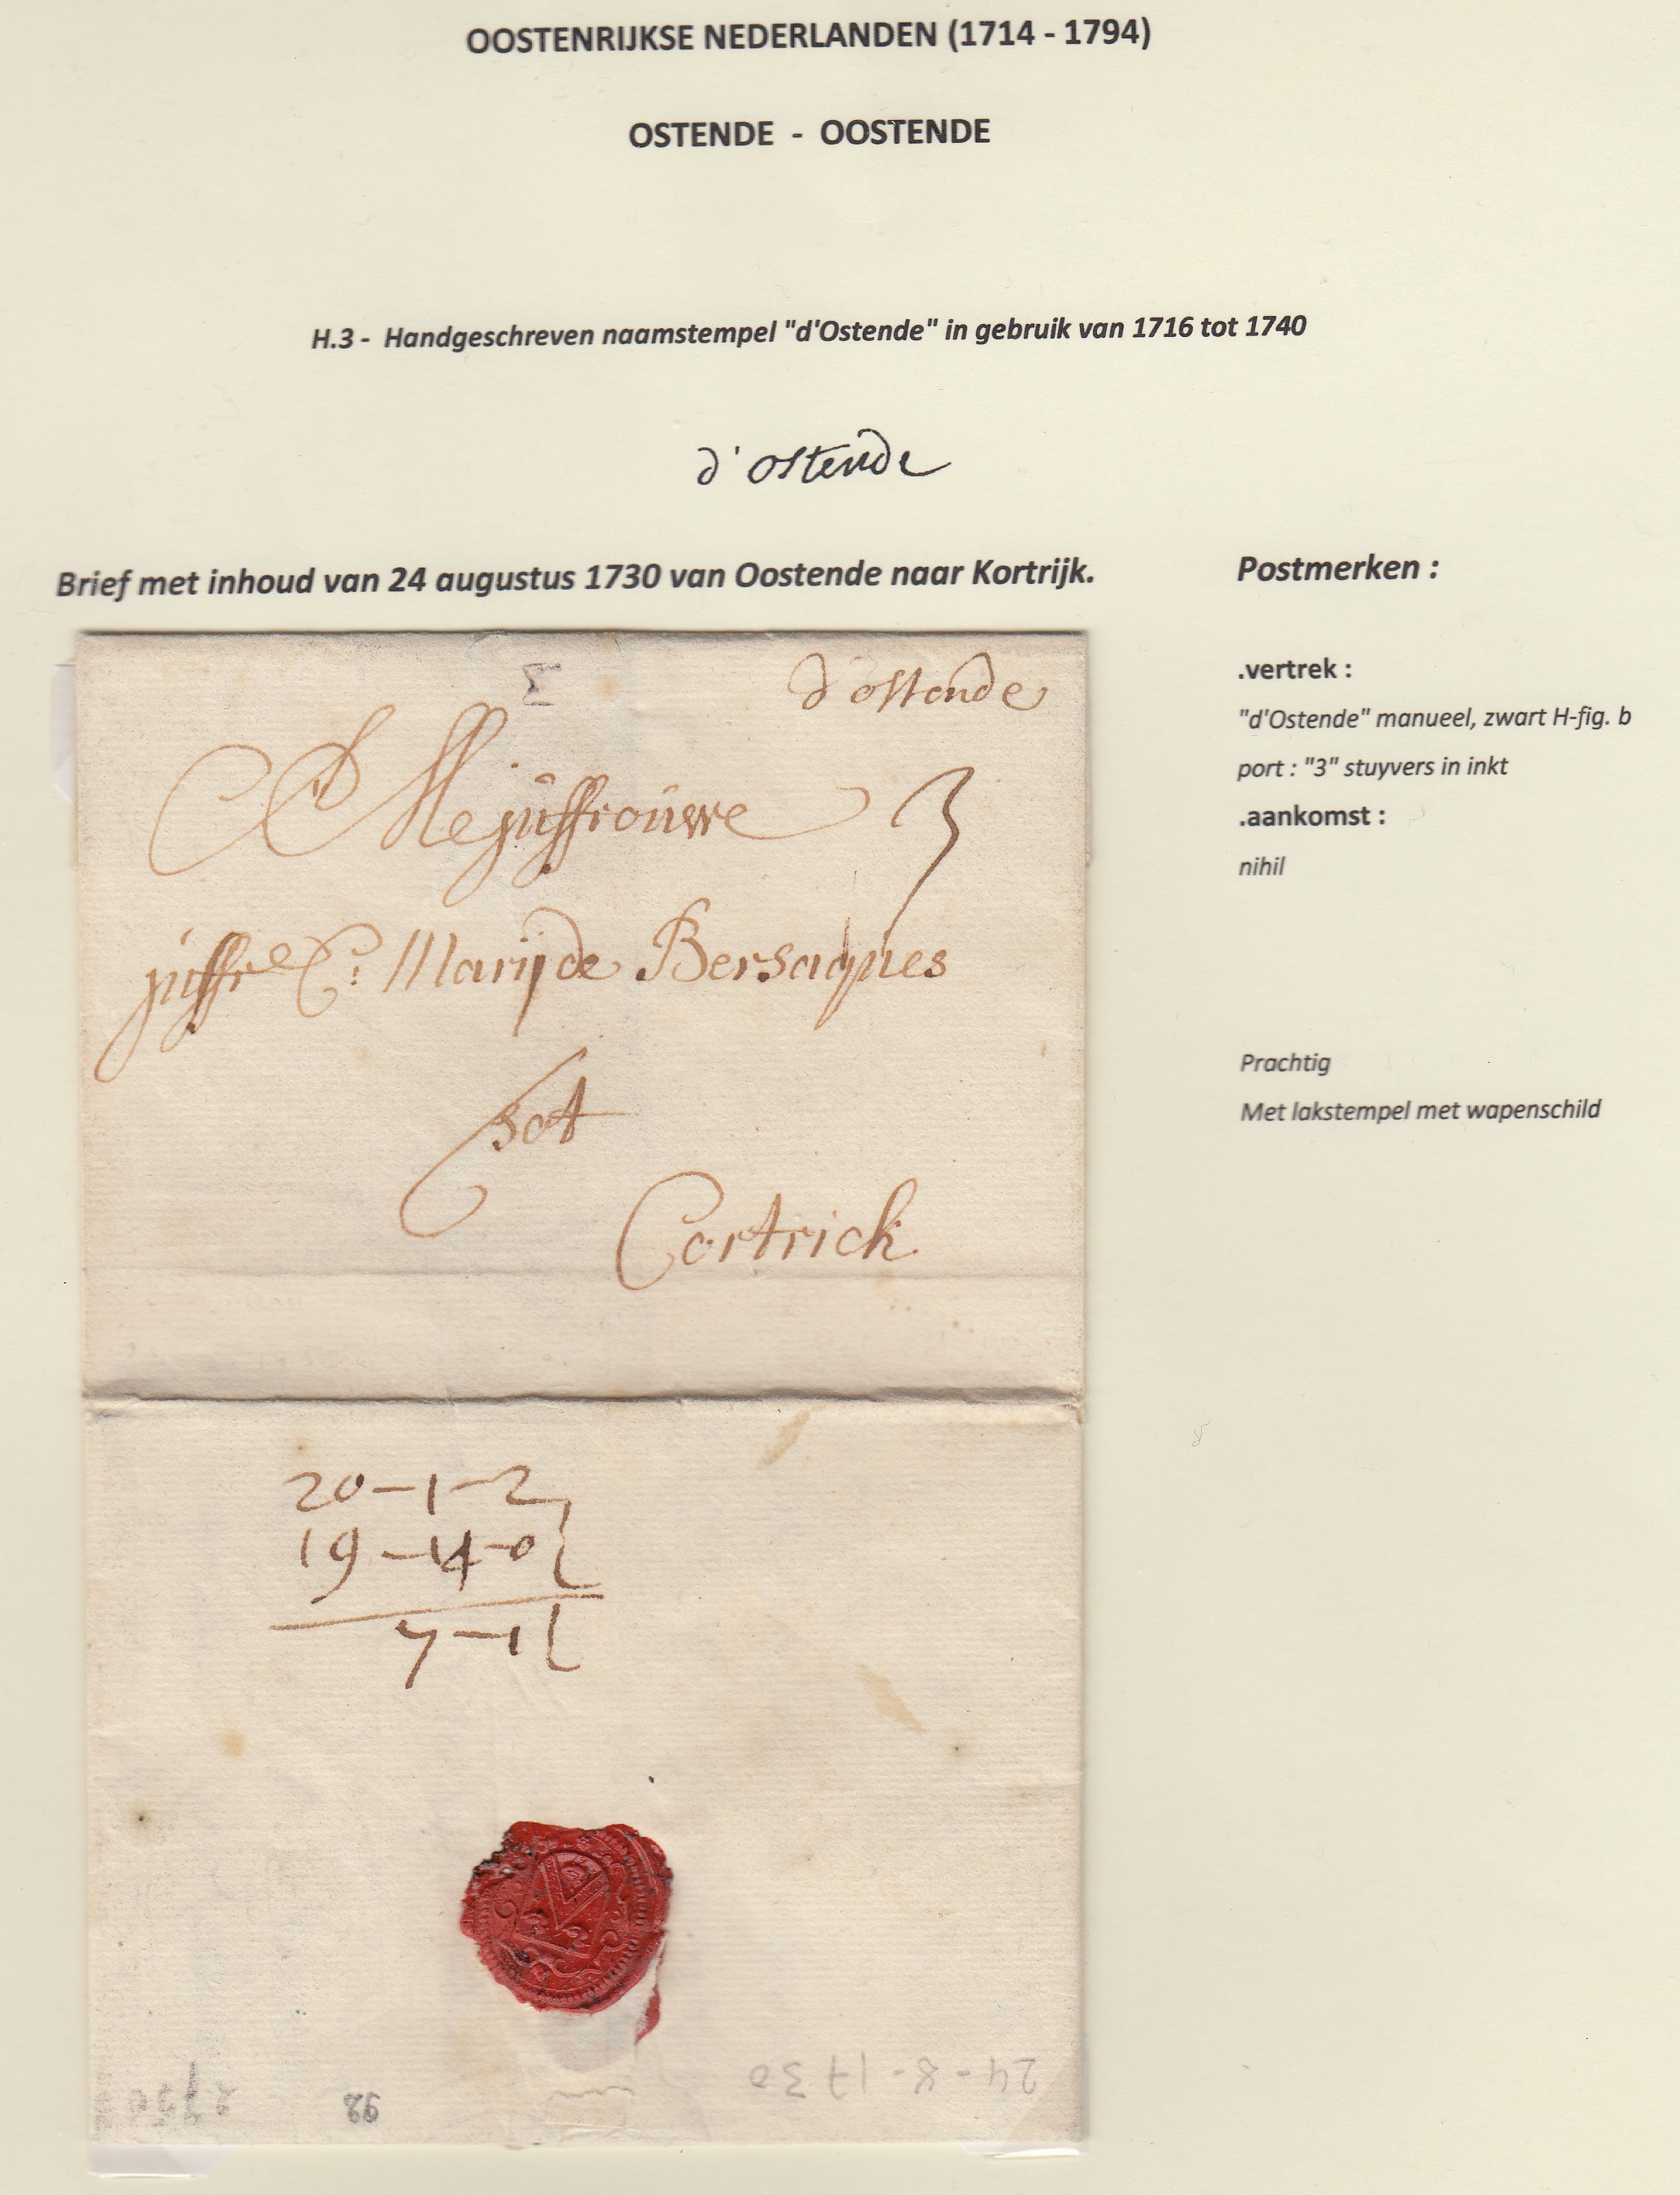 OOSTENRIJKSE NEDERLANDEN (1714 - 1794)
OSTENDE - OOSTENDE
H.3 - Handgeschreven naamstempel "d'Ostende" in gebruik van 1716 tot 1740
d'ostende
Brief met inhoud van 24 augustus 1730 van Oostende naar Kortrijk.
d'ostende
Mejuffrouwe 3
juffre Marij de Bersaques
tot
Cortrick
20-1-2
19-14-0
7-1
24-8-1730
92
Postmerken :
.vertrek :
"d'Ostende" manueel, zwart H-fig. b
port : "3" stuyvers in inkt
.aankomst :
nihil
Prachtig
Met lakstempel met wapenschild